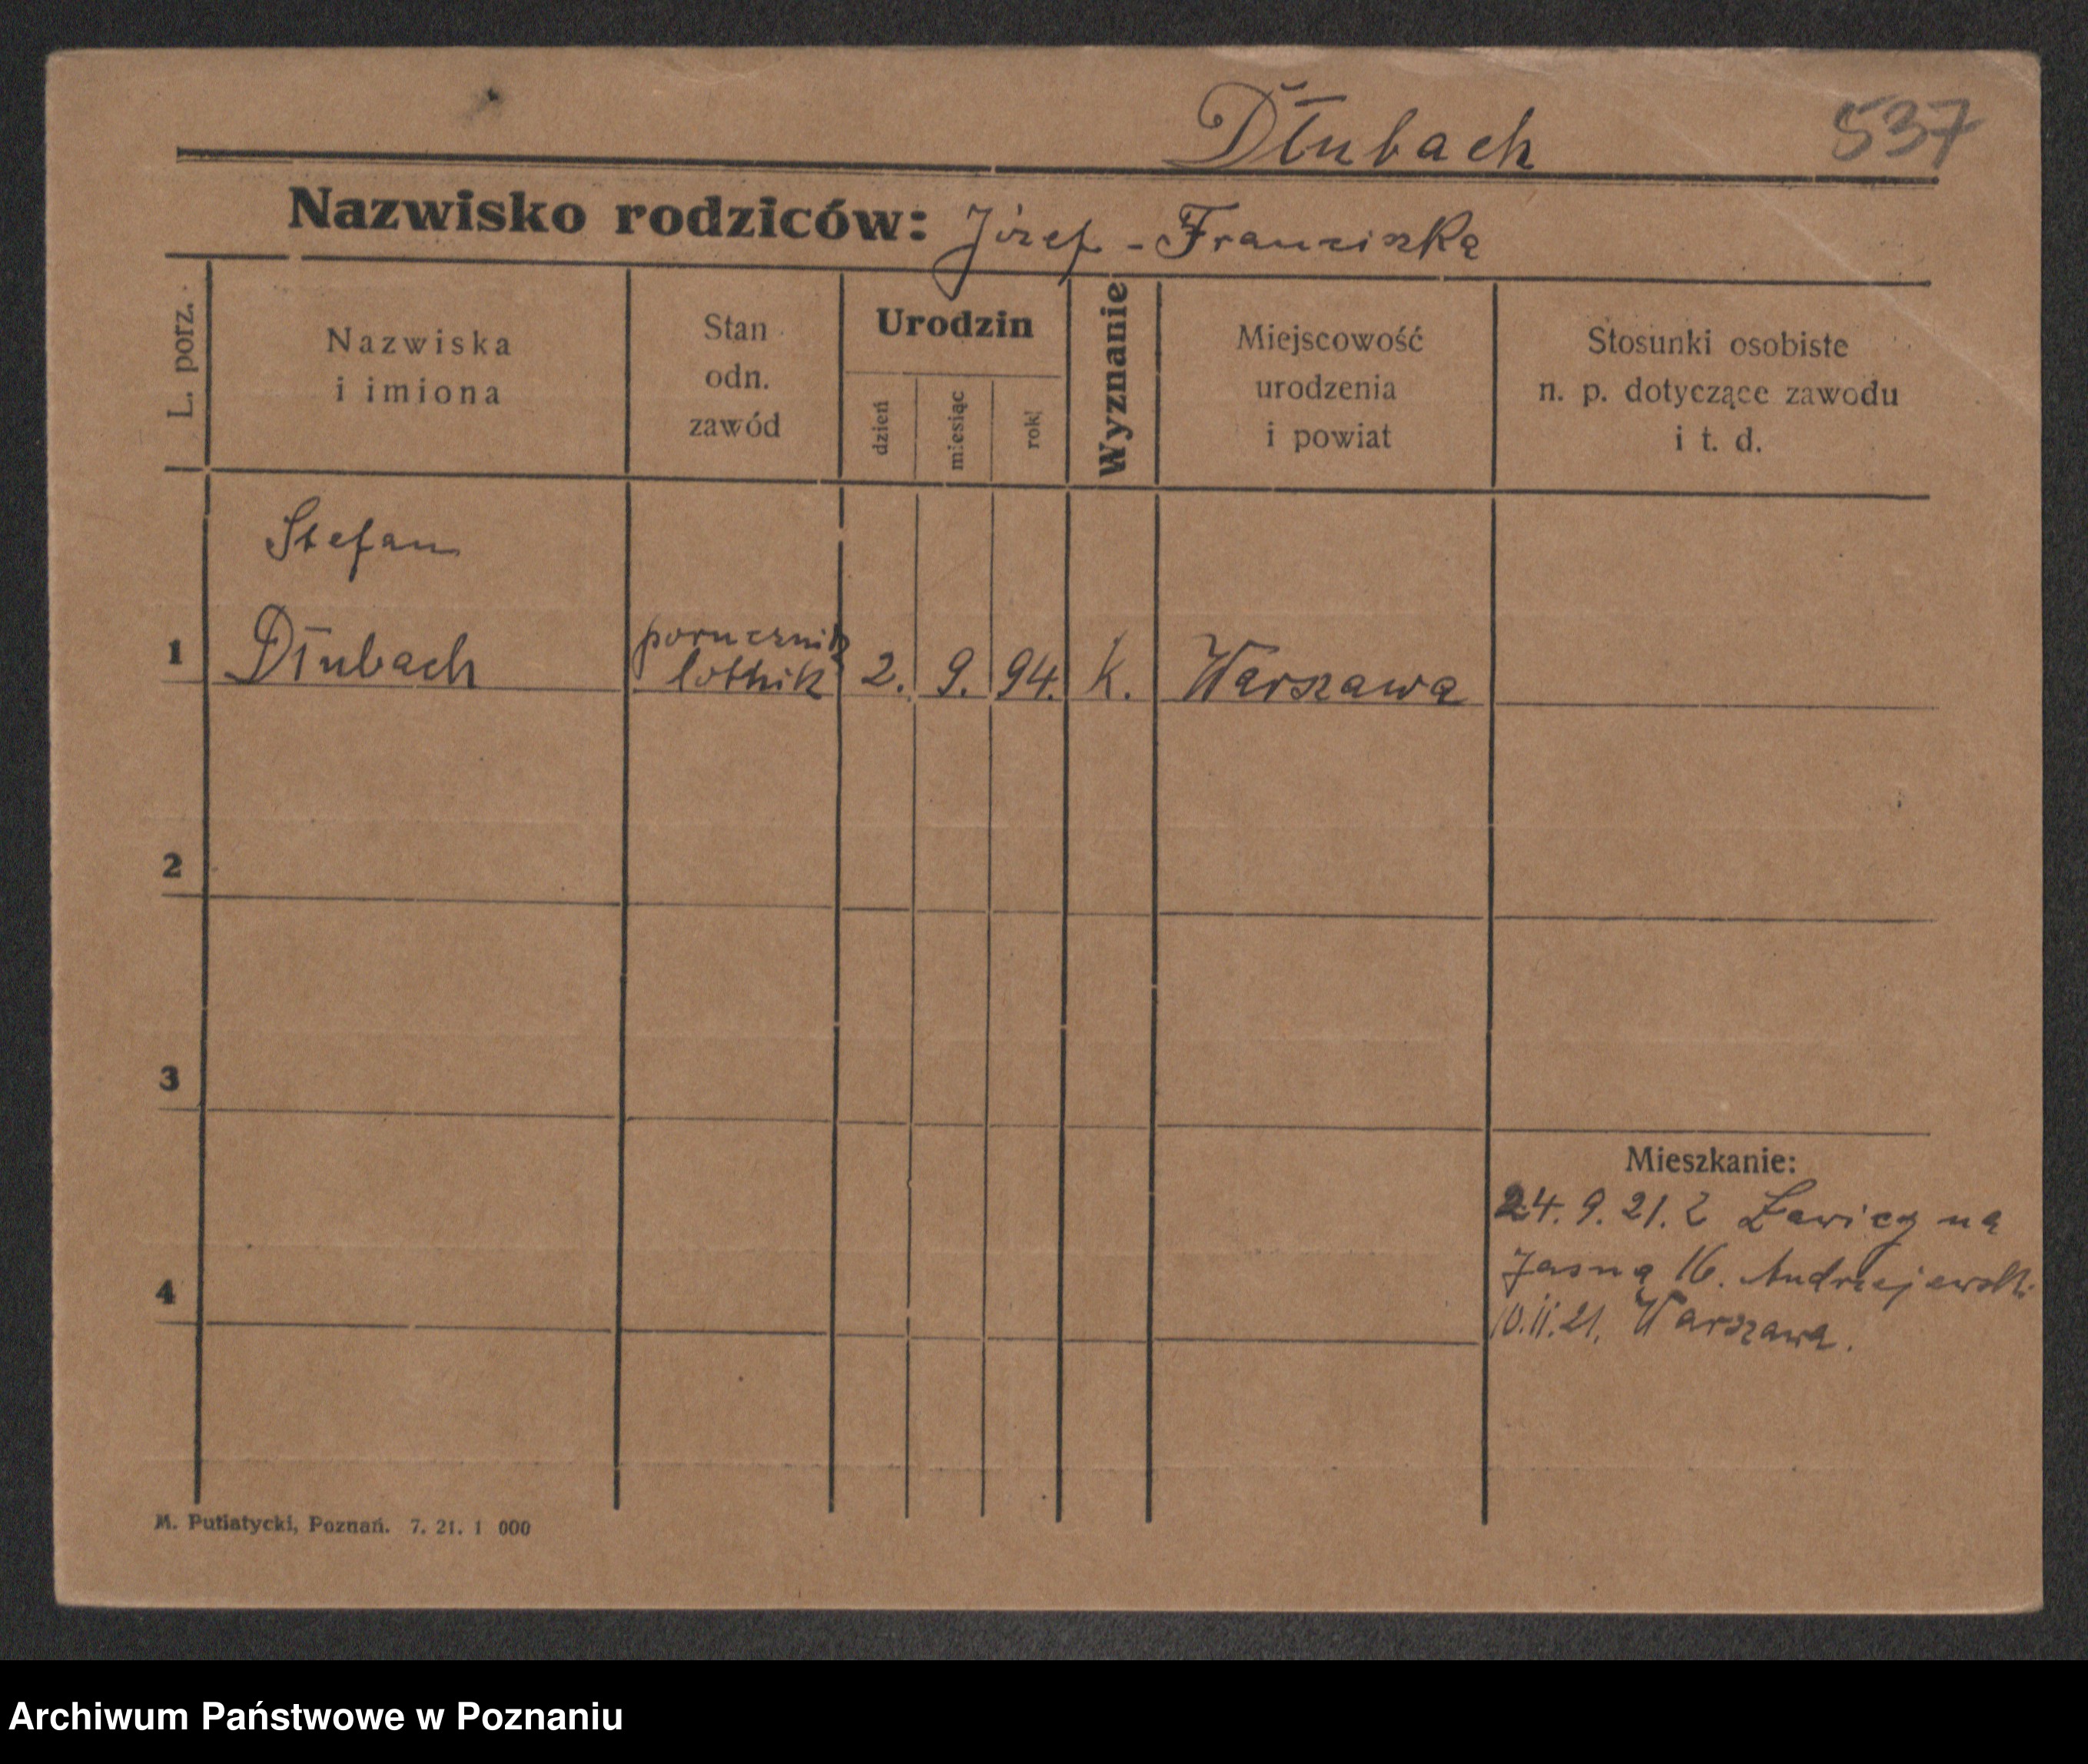 Dłubach 537
Nazwisko rodziców: Józef - Franciszka
L. porz.
Nazwiska
i imiona
Stan
odn.
zawód
Urodzin
dzień
miesiąc
rok
Wyznanie
Miejscowość
urodzenia
i powiat
Stosunki osobiste
n. p. dotyczące zawodu
i t. d.
Stefan
1 Dłubach porucznik lotnik 2. 9. 94. k. Warszawa
2
3
Mieszkanie:
24. 9. 21. z Ławicy na
Jasną 16. Andrzejewski
4
10.11.21. Warszawa.
M. Putiatycki, Poznań. 7. 21. 1 000
Archiwum Państwowe w Poznaniu